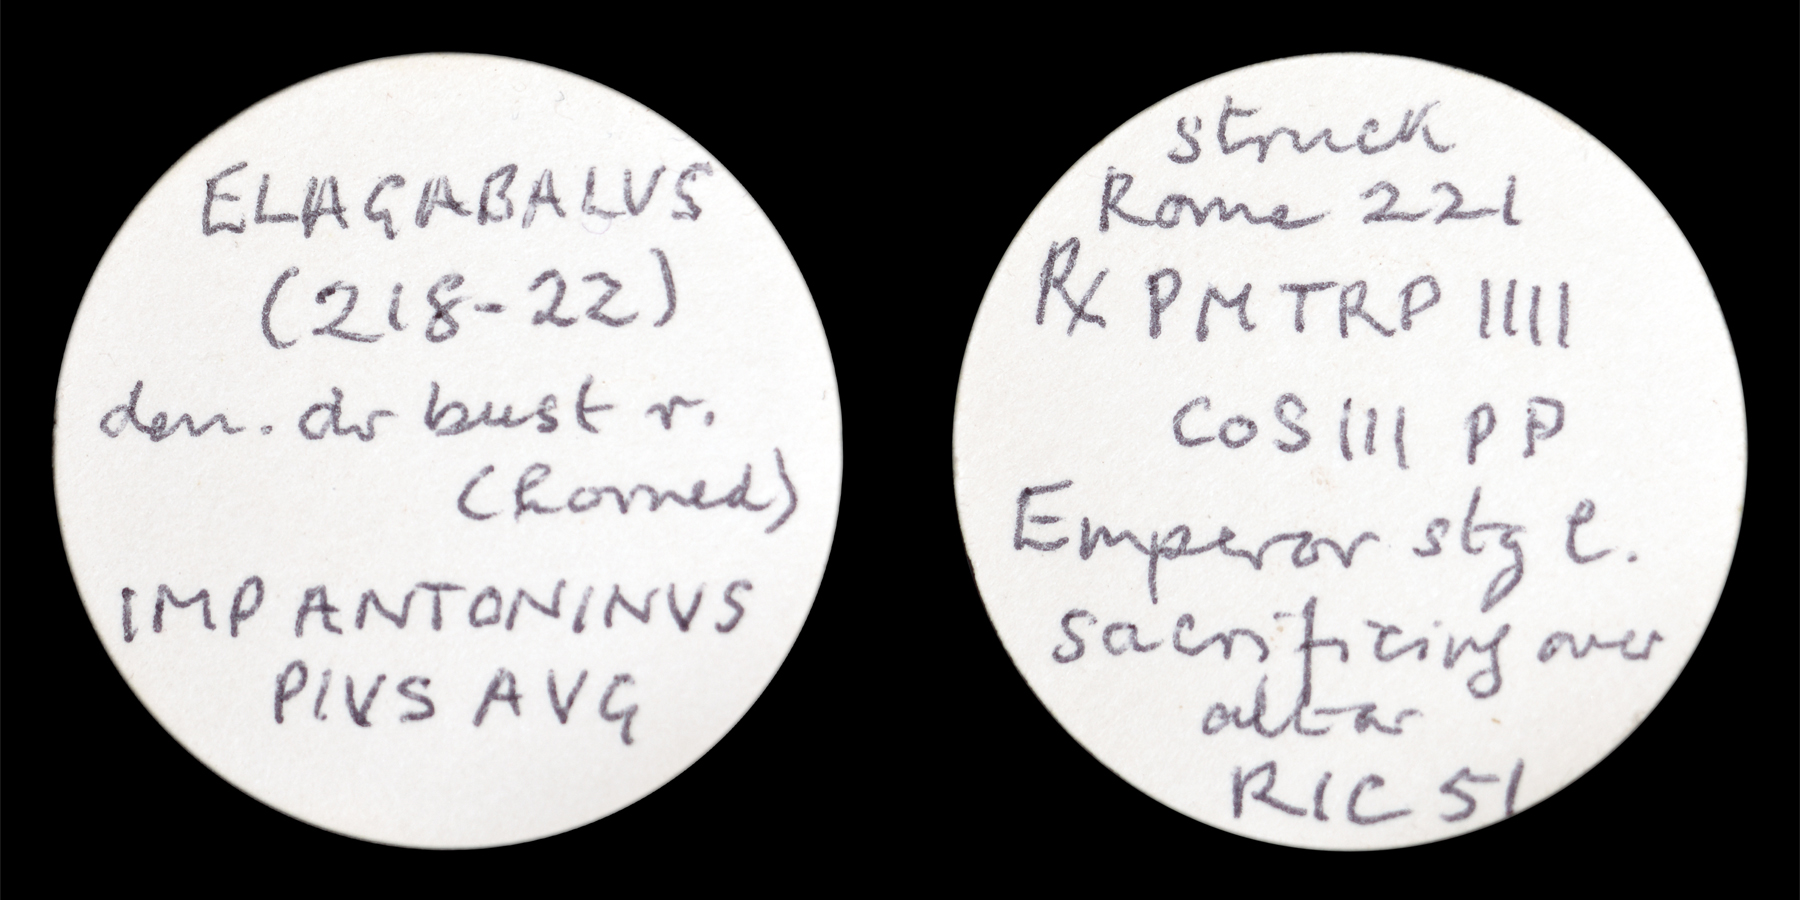 ELAGABALVS
(218-22)
den. dr bust r.
(horned)
IMP ANTONINVS
PIVS AVG
struck
Rome 221
Rx PM TRP IIII
COS III PP
Emperor stg l.
sacrificing over
altar
RIC 51